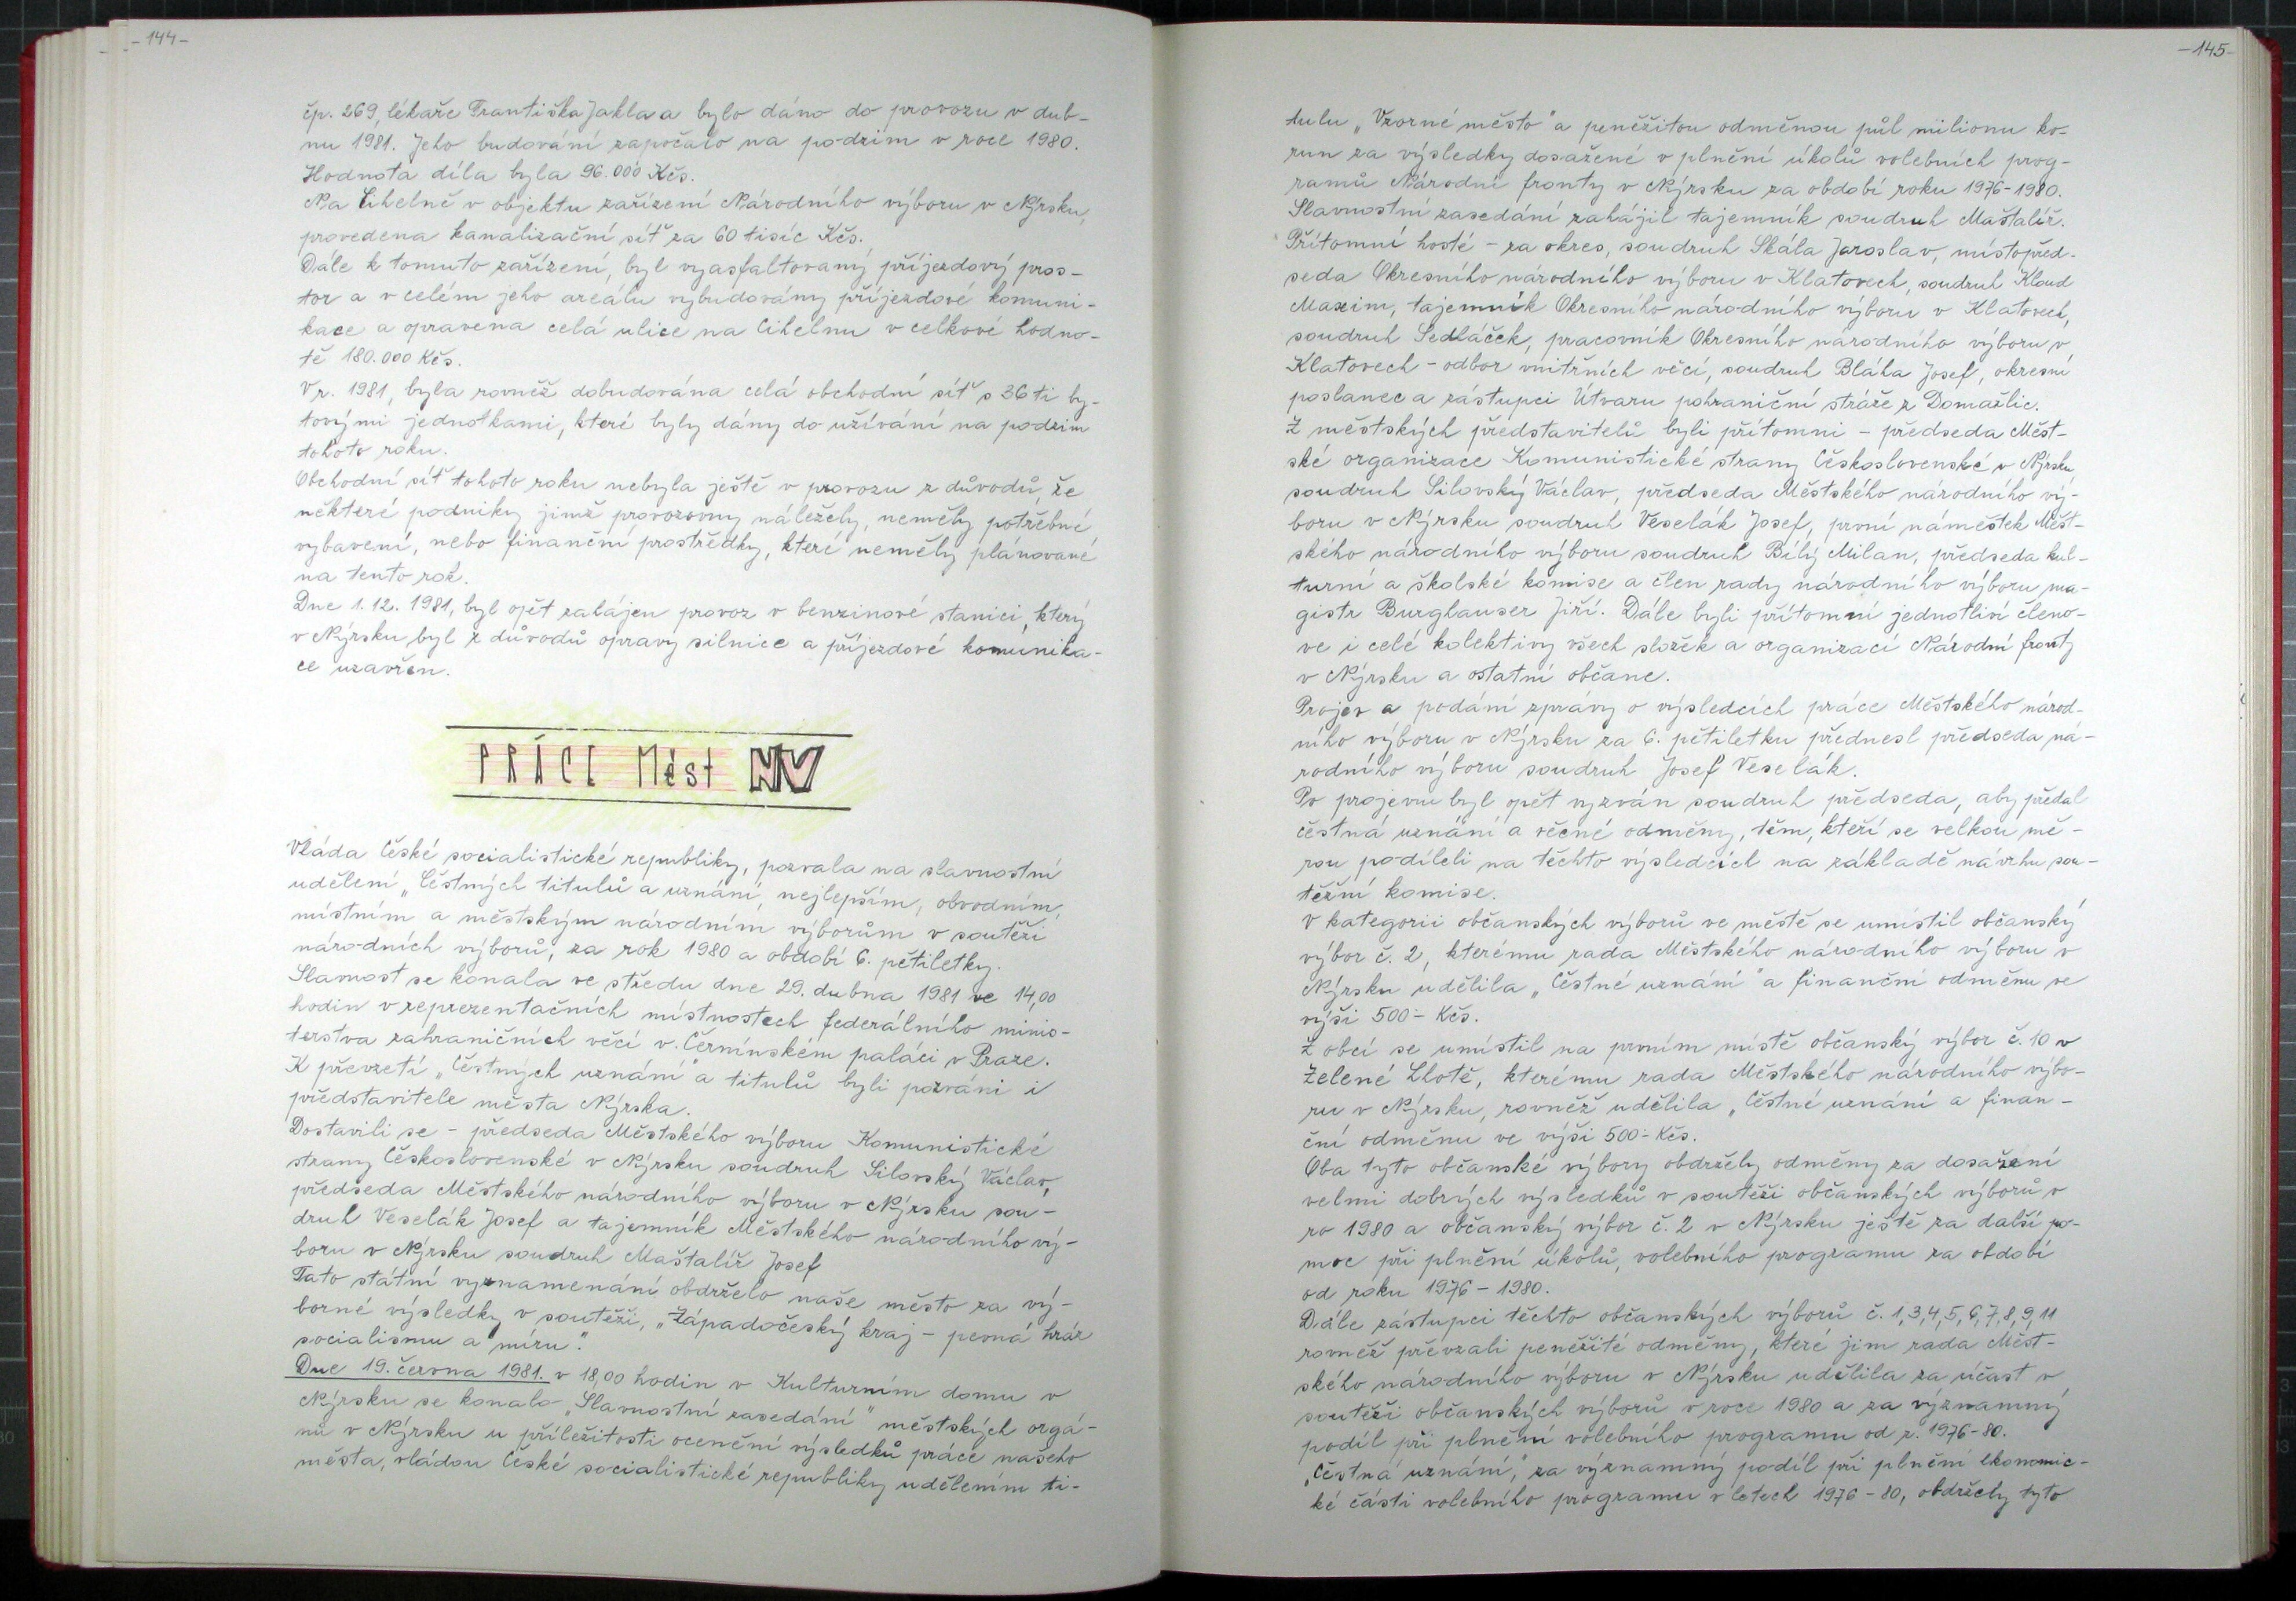 -144-
čp. 269, lékaře Františka Jakla a bylo dáno do provozu v dub-
nu 1981. Jeho budování započalo na podzim v roce 1980.
Hodnota díla byla 96.000 Kčs.
Na Cihelně v objektu zařízení Národního výboru v Nýrsku,
provedena kanalizační síť za 60 tisíc Kčs.
Dále k tomuto zařízení, byl vyasfaltovaný příjezdový pros-
tor a v celém jeho areálu vybudovány příjezdové komuni-
kace a opravena celá ulice na Cihelnu v celkové hodno-
tě 180.000 Kčs.
V r. 1981, byla rovněž dobudována celá obchodní síť s 36ti by-
tovými jednotkami, které byly dány do užívání na podzim
tohoto roku.
Obchodní síť tohoto roku nebyla ještě v provozu z důvodů, že
některé podniky jimž provozovny náležely, neměly potřebné
vybavení, nebo finanční prostředky, které neměly plánované
na tento rok.
Dne 1.12. 1981, byl opět zahájen provoz v benzinové stanici, který
v Nýrsku byl z důvodů opravy silnice a příjezdové komunika-
ce uzavřen.
PRÁCE Měst NV
Vláda České socialistické republiky, pozvala na slavnostní
udělení „Čestných titulů a uznání, nejlepším, obvodním,
místním a městským národním výborům v soutěži
národních výborů, za rok 1980 a období 6. pětiletky.
Slavnost se konala ve středu dne 29. dubna 1981 ve 14,00
hodin v reprezentačních místnostech federálního minis-
terstva zahraničních věcí v Černínském paláci v Praze.
K převzetí „Čestných uznání" a titulů byli pozváni i
představitele města Nýrska.
Dostavili se - předseda Městského výboru Komunistické
strany Československé v Nýrsku soudruh Silovský Václav,
předseda Městského národního výboru v Nýrsku sou-
druh Veselák Josef a tajemník Městského národního vý-
boru v Nýrsku soudruh Maštalíř Josef
Tato státní vyznamenání obdrželo naše město za vý-
borné výsledky v soutěži, „Západočeský kraj - pevná hráz
socialismu a míru".
Dne 19. června 1981. v 18,00 hodin v Kulturním domu v
Nýrsku se konalo „Slavnostní zasedání" městských orgá-
nů v Nýrsku u příležitosti ocenění výsledků práce našeho
města, vládou České socialistické republiky udělením ti-
-145-
tulu „Vzorné město" a peněžitou odměnou půl miilionu ko-
run za výsledky dosažené v plnění úkolů volebních prog-
ramů Národní fronty v Nýrsku za období roku 1976-1980.
Slavnostní zasedání zahájil tajemník soudruh Maštalíř.
Přítomní hosté - za okres, soudruh Skála Jaroslav, místopřed-
seda Okresního národního výboru v Klatovech, soudruh Kloud
Maxim, tajemník Okresního národního výboru v Klatovech,
soudruh Sedláček, pracovník Okresního národního výboru v
Klatovech - odbor vnitřních věcí, soudruh Bláha Josef, okresní
poslanec a zástupci Útvaru pohraniční stráže z Domažlic.
Z městských představitelů byli přítomni - předseda Měst-
ské organizace Komunistické strany Československé v Nýrsku
soudruh Silovský Václav, předseda Městského národního vý-
boru v Nýrsku soudruh Veselák Josef, první náměstek Měst-
ského národního výboru soudruh Bílý Milan, předseda kul-
turní a školské komise a člen rady národního výboru ma-
gistr Burghauser Jiří. Dále byli přítomni jednotliví členo-
ve i celé kolektivy všech složek a organizací Národní fronty
v Nýrsku a ostatní občane.
Projev a podání zprávy o výsledcích práce Městského národ-
ního výboru v Nýrsku za 6. pětiletku přednesl předseda ná-
rodního výboru soudruh Josef Veselák.
Po projevu byl opět vyzván soudruh předseda, aby předal
čestná uznání a věcné odměny, těm, kteří se velkou mě-
rou podíleli na těchto výsledcích na základě návrhu sou-
těžní komise.
V kategorii občanských výborů ve městě se umístil občanský
výbor č. 2, kterému rada Městského národního výboru v
Nýrsku udělila „Čestné uznání" a finanční odměnu ve
výši 500.- Kčs.
Z obcí se umístil na prvním místě občanský výbor č. 10 v
Zelené Lhotě, kterému rada Městského národního výbo-
ru v Nýrsku, rovněž udělila „Čestné uznání a finan-
ční odměnu ve výši 500.- Kčs.
Oba tyto občanské výbory obdržely odměny za dosažení
velmi dobrých výsledků v soutěži občanských výborů v
ro 1980 a občanský výbor č. 2 v Nýrsku ještě za další po-
moc při plnění úkolů, volebního programu za období
od roku 1976 - 1980.
Dále zástupci těchto občanských výborů č. 1,3,4,5,6,7,8,9,11
rovněž převzali peněžité odměny, které jim rada Měst-
ského národního výboru v Nýrsku udělila za účast v
soutěži občanských výborů v roce 1980 a za významný
podíl při plnění volebního programu od r. 1976-80.
„Čestná uznání," za významný podíl při plnění ekonomic-
ké části volebního programu v letech 1976 - 80, obdržely tyto